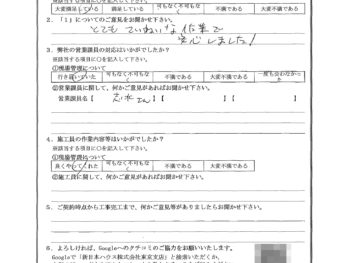 ※該当する項目に○を記入して下さい。
大変満足している 満足している 可もなく不可もなく 不満である 大変不満である
2．「1」についてのご意見をお聞かせ下さい。
とても ていねいな 作業で
安心しました！
3．弊社の営業課員の対応はいかがでしたか？
※該当する項目に○を記入して下さい。
①現場管理について
行き届いていた 可もなく不可もなく 不満である 大変不満である 一度も会わなかった
②営業課員に関して、何かご意見があればお聞かせ下さい。
営業課員名【 志水さん 】【 】
4．施工員の作業内容等はいかがでしたか？
※該当する項目に○を記入して下さい。
①現場管理について
良くやってくれた 可もなく不可もなく 不満である 大変不満である
②施工員に関して、何かご意見があればお聞かせ下さい。
5．ご契約時点から工事完工まで、何かご意見等がありましたらお聞かせ下さい。
6．よろしければ、Googleへのクチコミのご協力をお願いいたします。
Googleで「新日本ハウス株式会社東京支店」と検索いただくか、